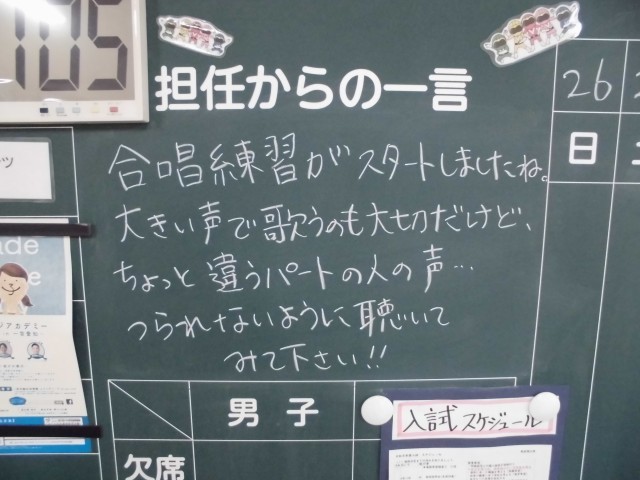 105
担任からの一言
26
日
合唱練習がスタートしましたね。
大きい声で歌うのも大切だけど、
ちょっと違うパートの人の声…
つられないように聴いて
みて下さい!!
ッ
ジアカデミー
男子
欠席
入試スケジュール